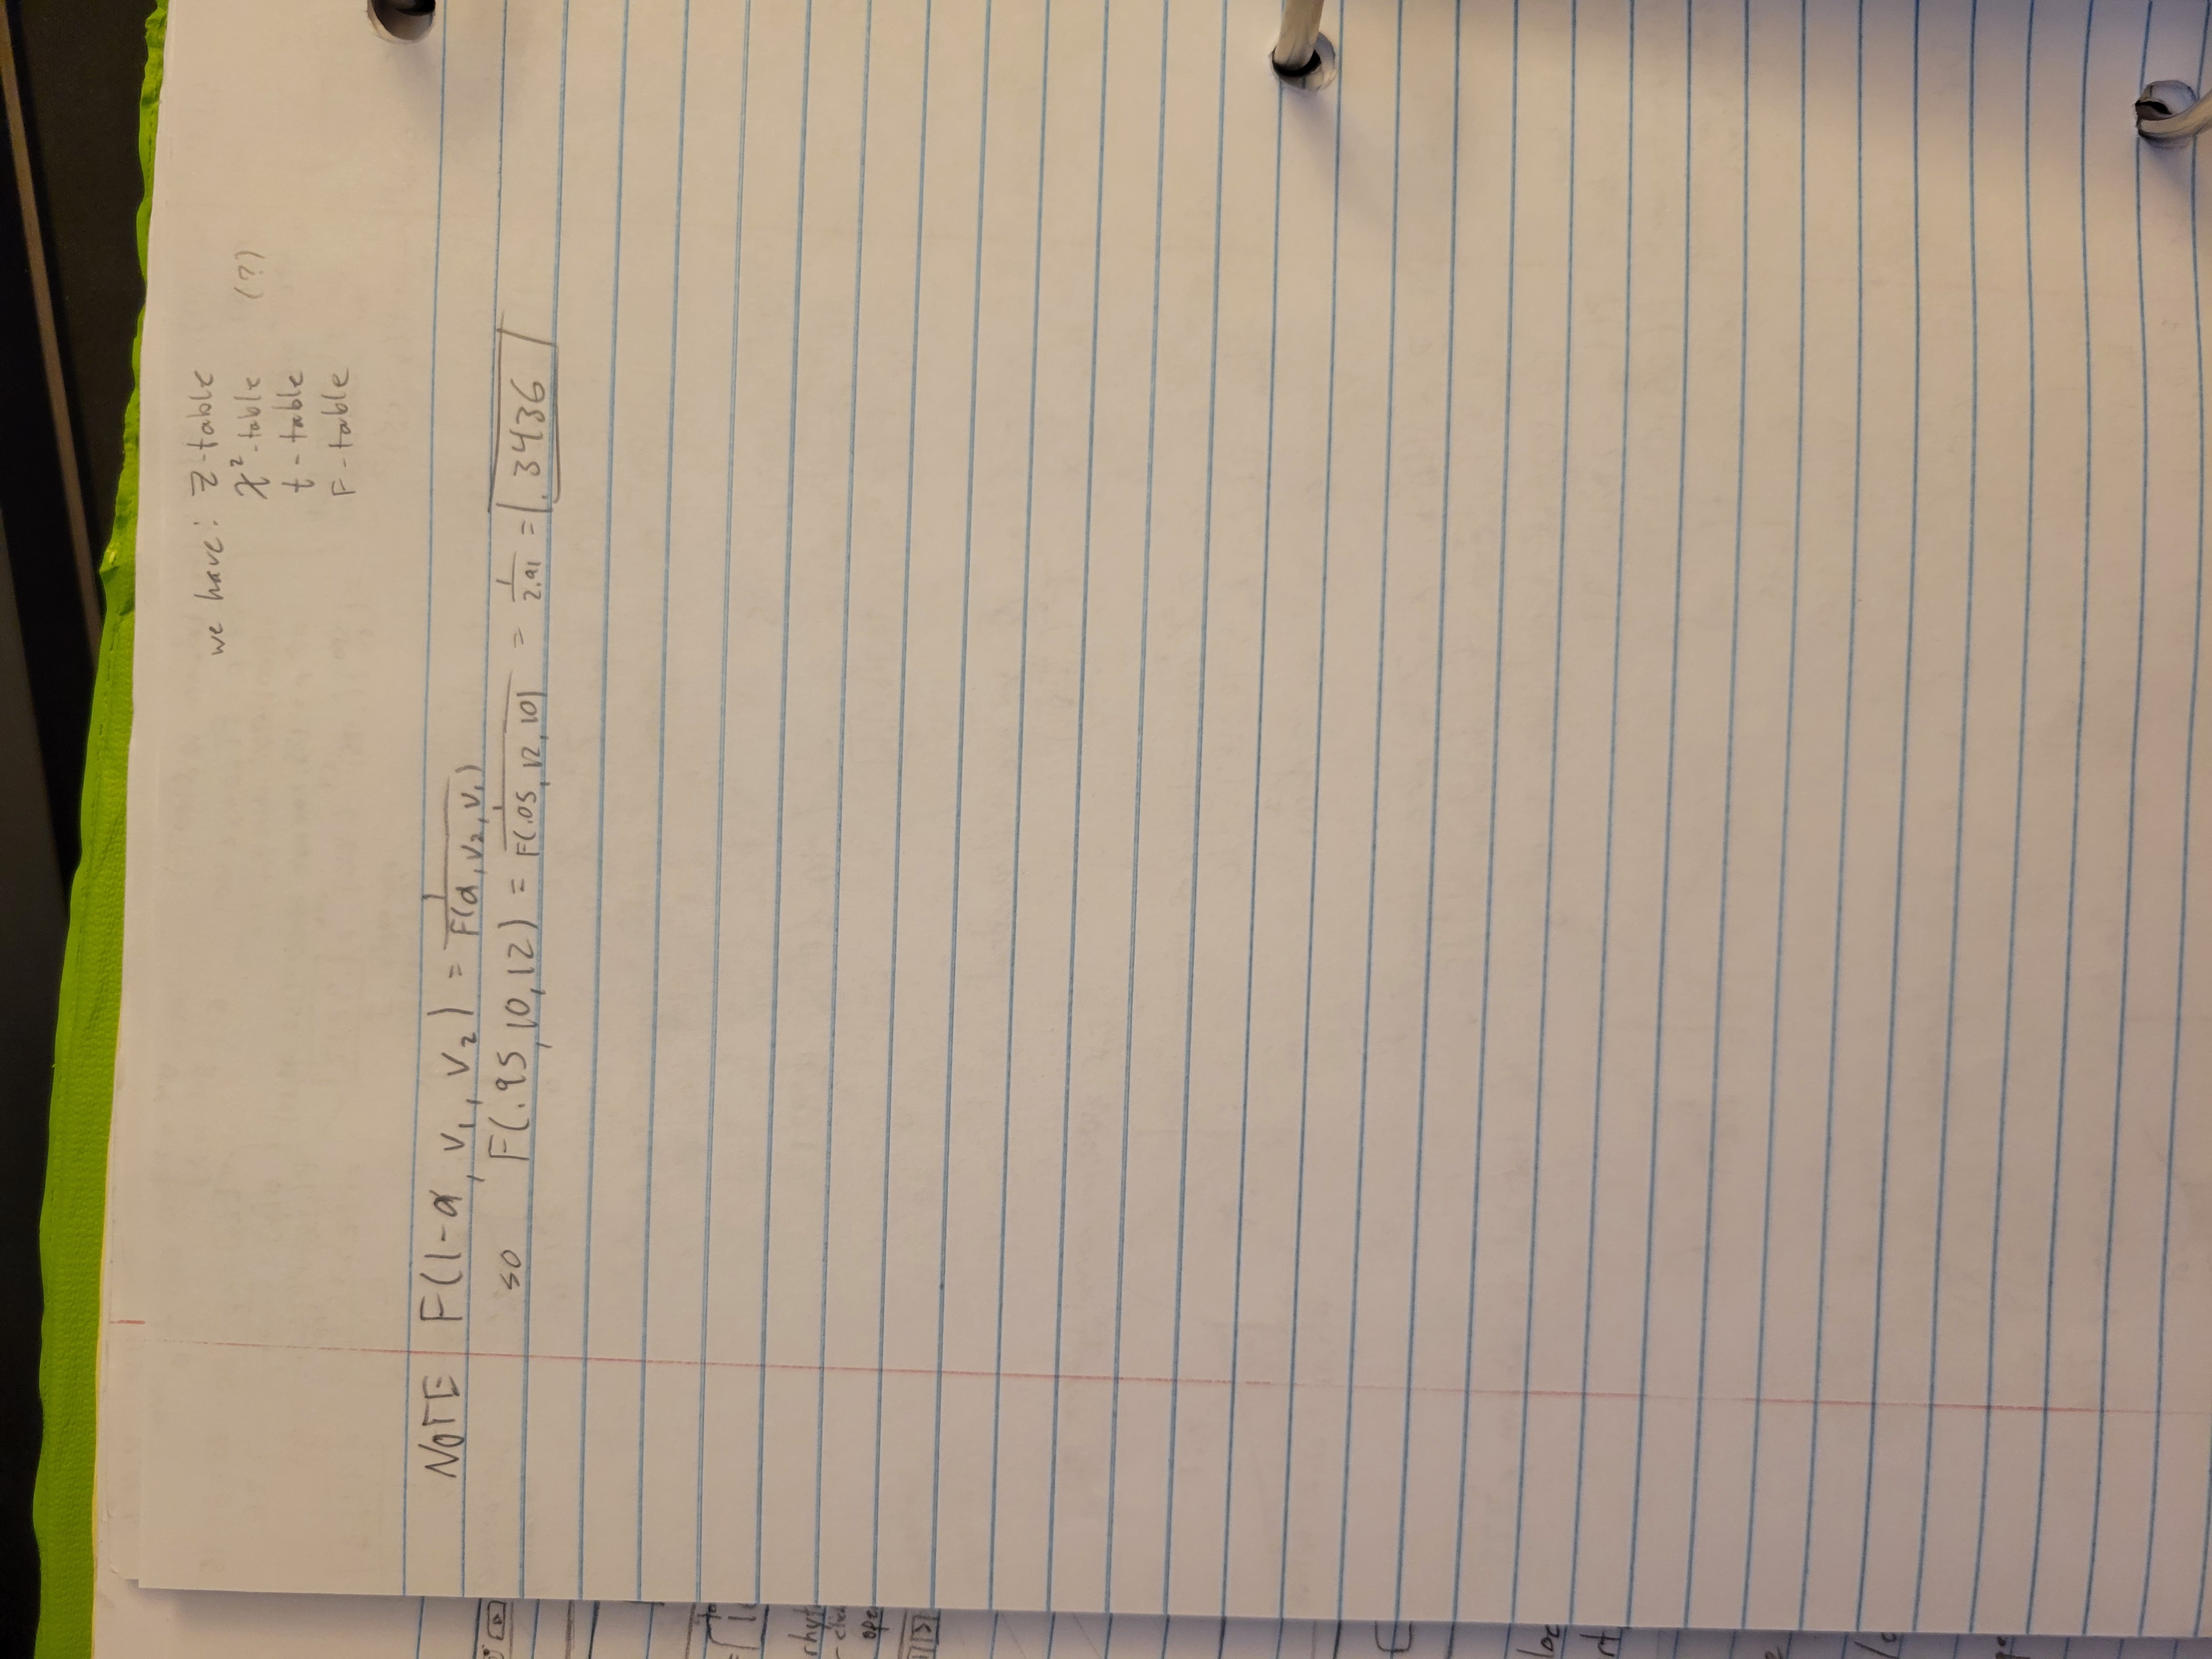 we have: Z-table
χ²-table (?)
t-table
F-table
NOTE F(1-α, v₁, v₂) = 1/F(α, v₂, v₁)
so F(.95, 10, 12) = 1/F(.05, 12, 10) = 1/2.91 = .3436
rhyt
ope
loc
rt